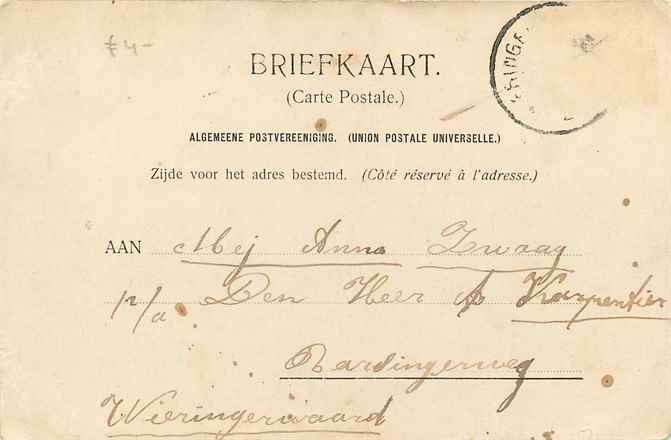 f 4-
BRIEFKAART.
(Carte Postale.)
ALGEMEENE POSTVEREENIGING. (UNION POSTALE UNIVERSELLE.)
Zijde voor het adres bestemd. (Côté réservé à l'adresse.)
AAN Mej Anna Zwaag
p/a Den Heer Karpentier
Wieringerwaard